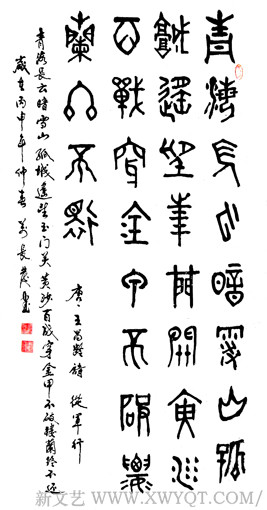 青海長雲暗雪山孤
城遙望玉門關黃沙
百戰穿金甲不破樓
蘭終不還
唐·王昌齡詩 從軍行
青海長云暗雪山孤城遙望玉门关黄沙百战穿金甲不破楼蘭终不还
歲在丙申年仲春
新文艺 WWW.XWYQT.COM/